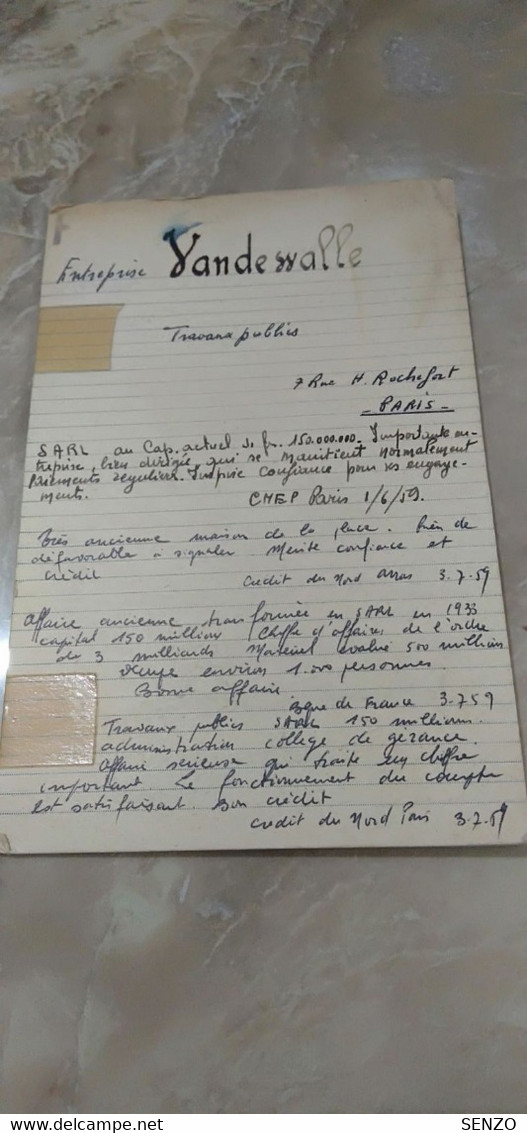 Entreprise Vandewalle
Travaux publics
7 Rue H. Rochefort
- PARIS -
SARL au Cap. actuel de fr. 150.000.000. Importante en-
treprise, bien dirigée, qui se maintient normalement
Paiements réguliers. Inspire confiance pour ses engage-
ments.
CNEP Paris 1/6/59.
Très ancienne maison de la place. Rien de
défavorable à signaler Mérite confiance et
crédit
Credit du Nord Arras 3.7.59
Affaire ancienne transformée en SARL en 1933
capital 150 millions Chiffre d'affaires de l'ordre
de 3 milliards Matériel évalué 500 millions
Occupe environ 1.000 personnes.
Bonne affaire.
Bque de France 3.7.59
Travaux publics SARL 150 millions.
administration collège de gérance
Affaire sérieuse qui traite un chiffre
important. Le fonctionnement du compte
est satisfaisant. Bon crédit
Credit du Nord Paris 3.7.59
SENZO